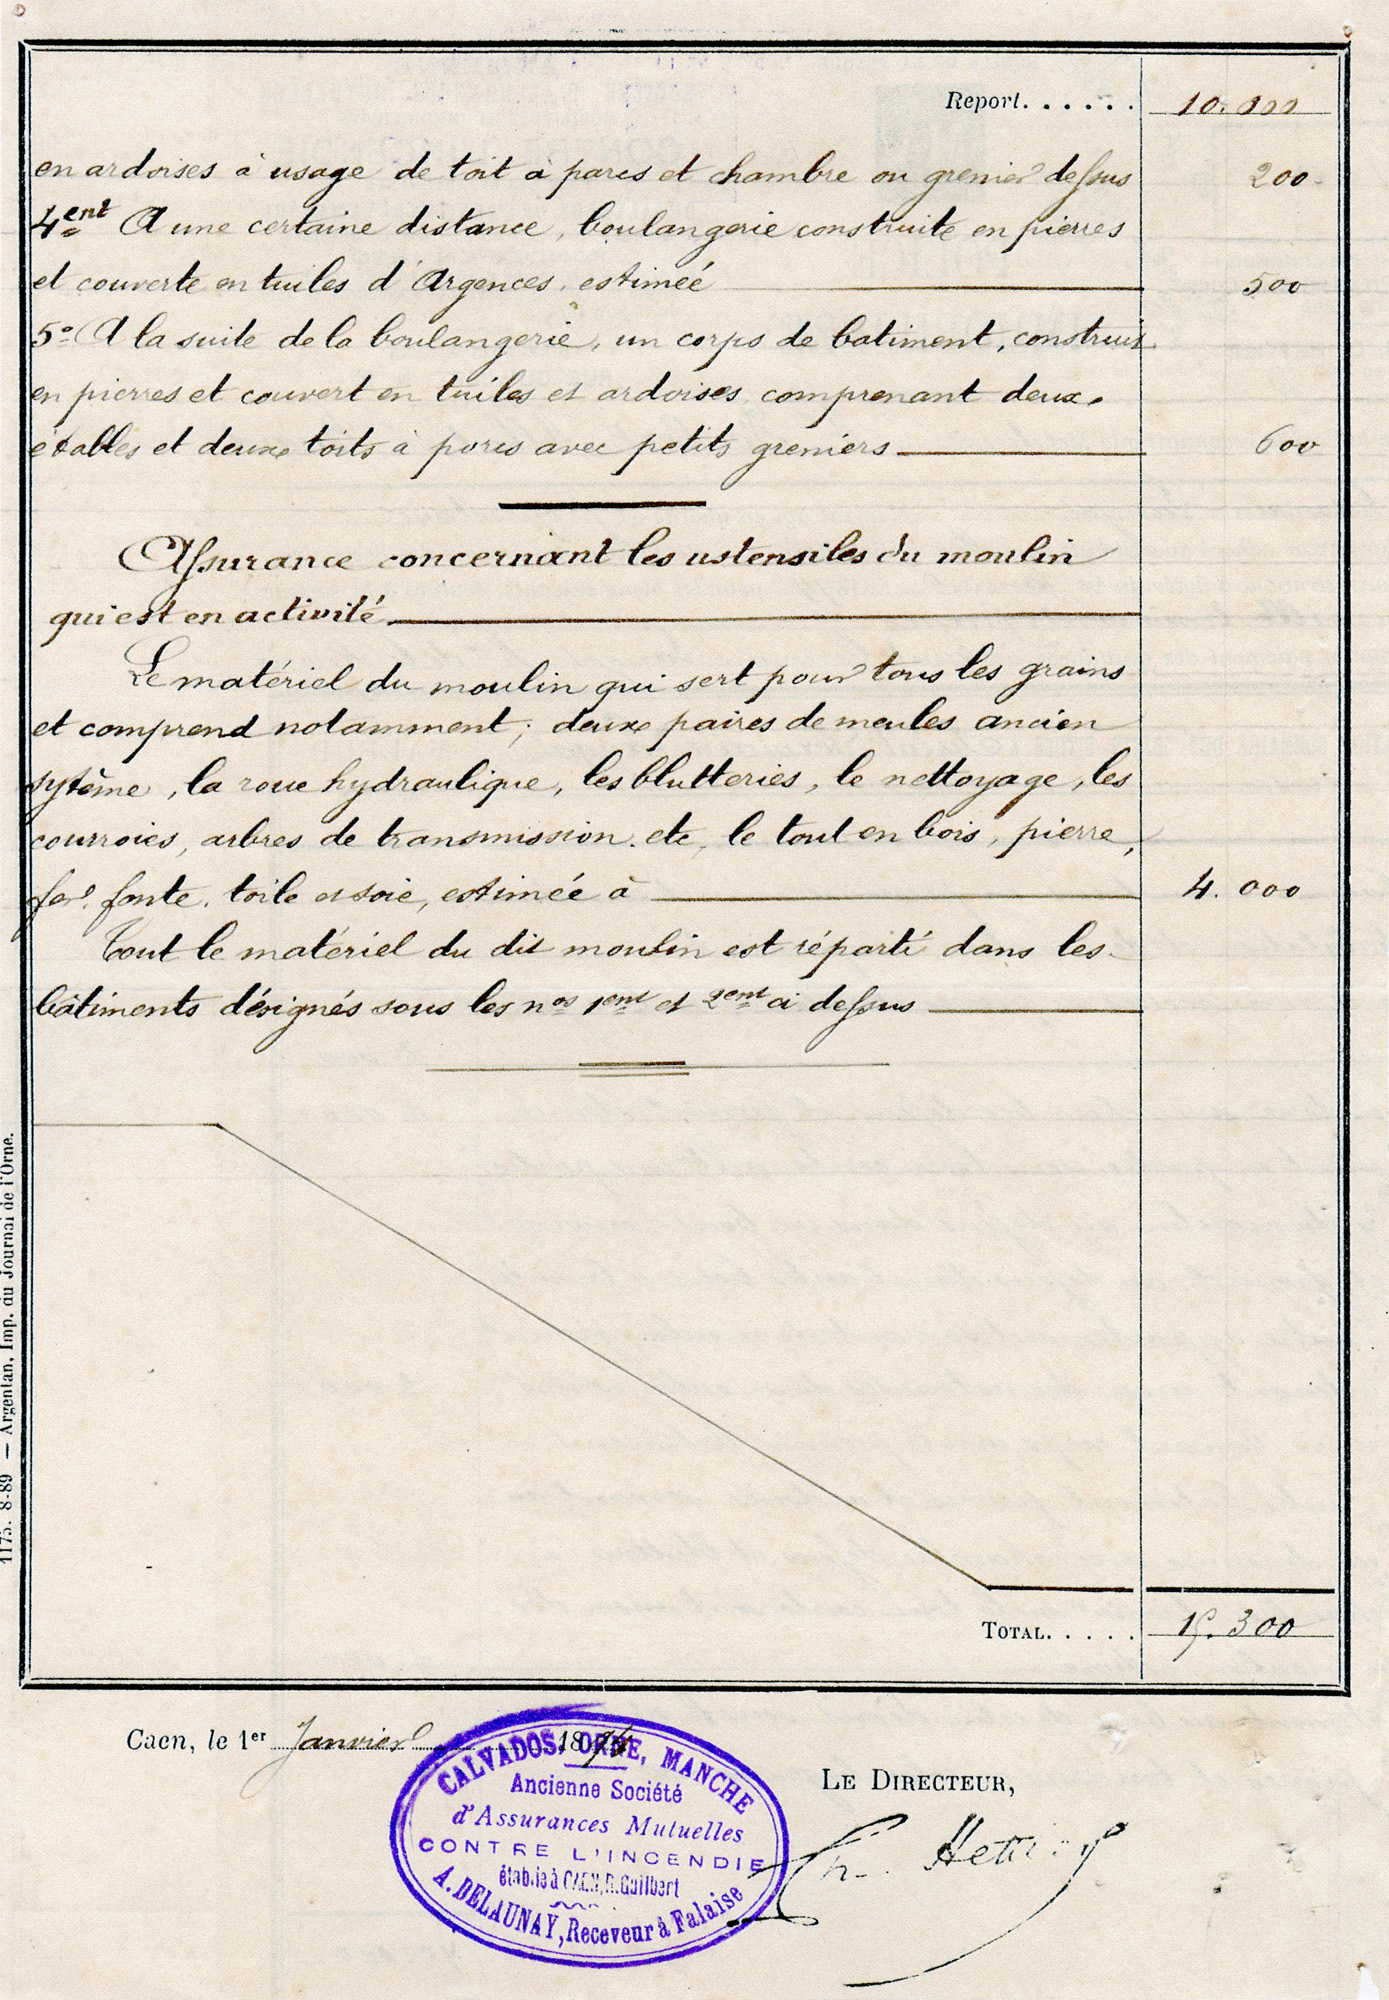 Report. . . . . . 10.000
en ardoises à usage de toit à porcs et chambre ou grenier dessus 200
4ent A une certaine distance, boulangerie construite en pierres
et couverte en tuiles d'Argences, estimée 500
5° A la suite de la boulangerie, un corps de batiment, construit
en pierres et couvert en tuiles et ardoises comprenant deux
étables et deux toits à porcs avec petits greniers 600
Assurance concernant les ustensiles du moulin
qui est en activité
Le matériel du moulin qui sert pour tous les grains
et comprend notamment; deux paires de meules ancien
sytème, la roue hydraulique, les blutteries, le nettoyage, les
courroies, arbres de transmission. etc, le tout en bois, pierre,
fer, fonte, toile et soie, estimée à 4.000
Tout le matériel du dit moulin est réparti dans les
bâtiments désignés sous les nos 1ent et 2ent ci dessus
TOTAL. . . . . 15.300
1175. 8-89 — Argentan, Imp. du Journal de l'Orne.
Caen, le 1er Janvier 18
LE DIRECTEUR,
CALVADOS, ORNE, MANCHE
Ancienne Société
d'Assurances Mutuelles
CONTRE L'INCENDIE
établie à CAEN, R. Guilbert
A. DELAUNAY, Receveur à Falaise